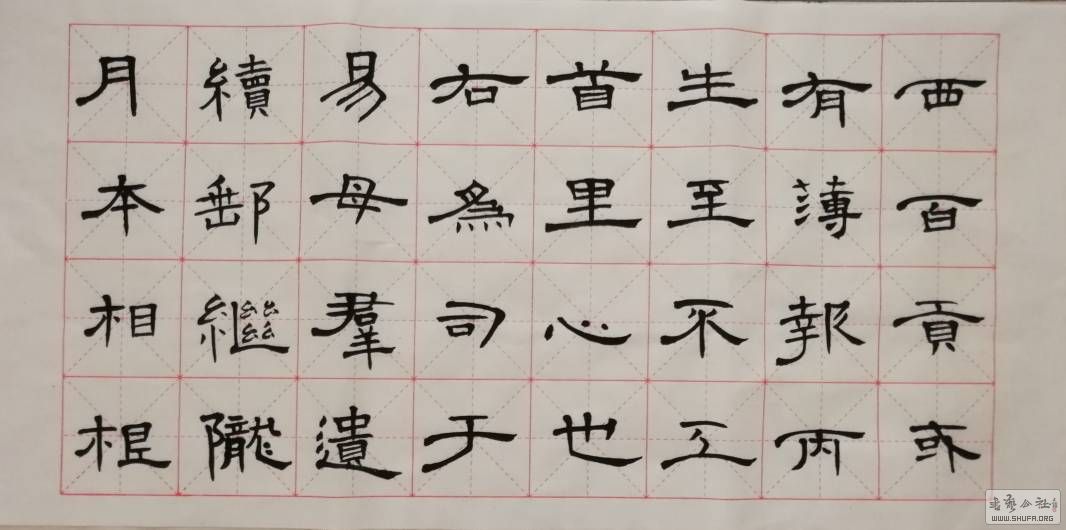 西百貢或
有薄報丙
生至不工
首里心也
右爲司于
易母羣遺
續郵繼隴
月本相根
书艺公社
WWW.SHUFA.ORG